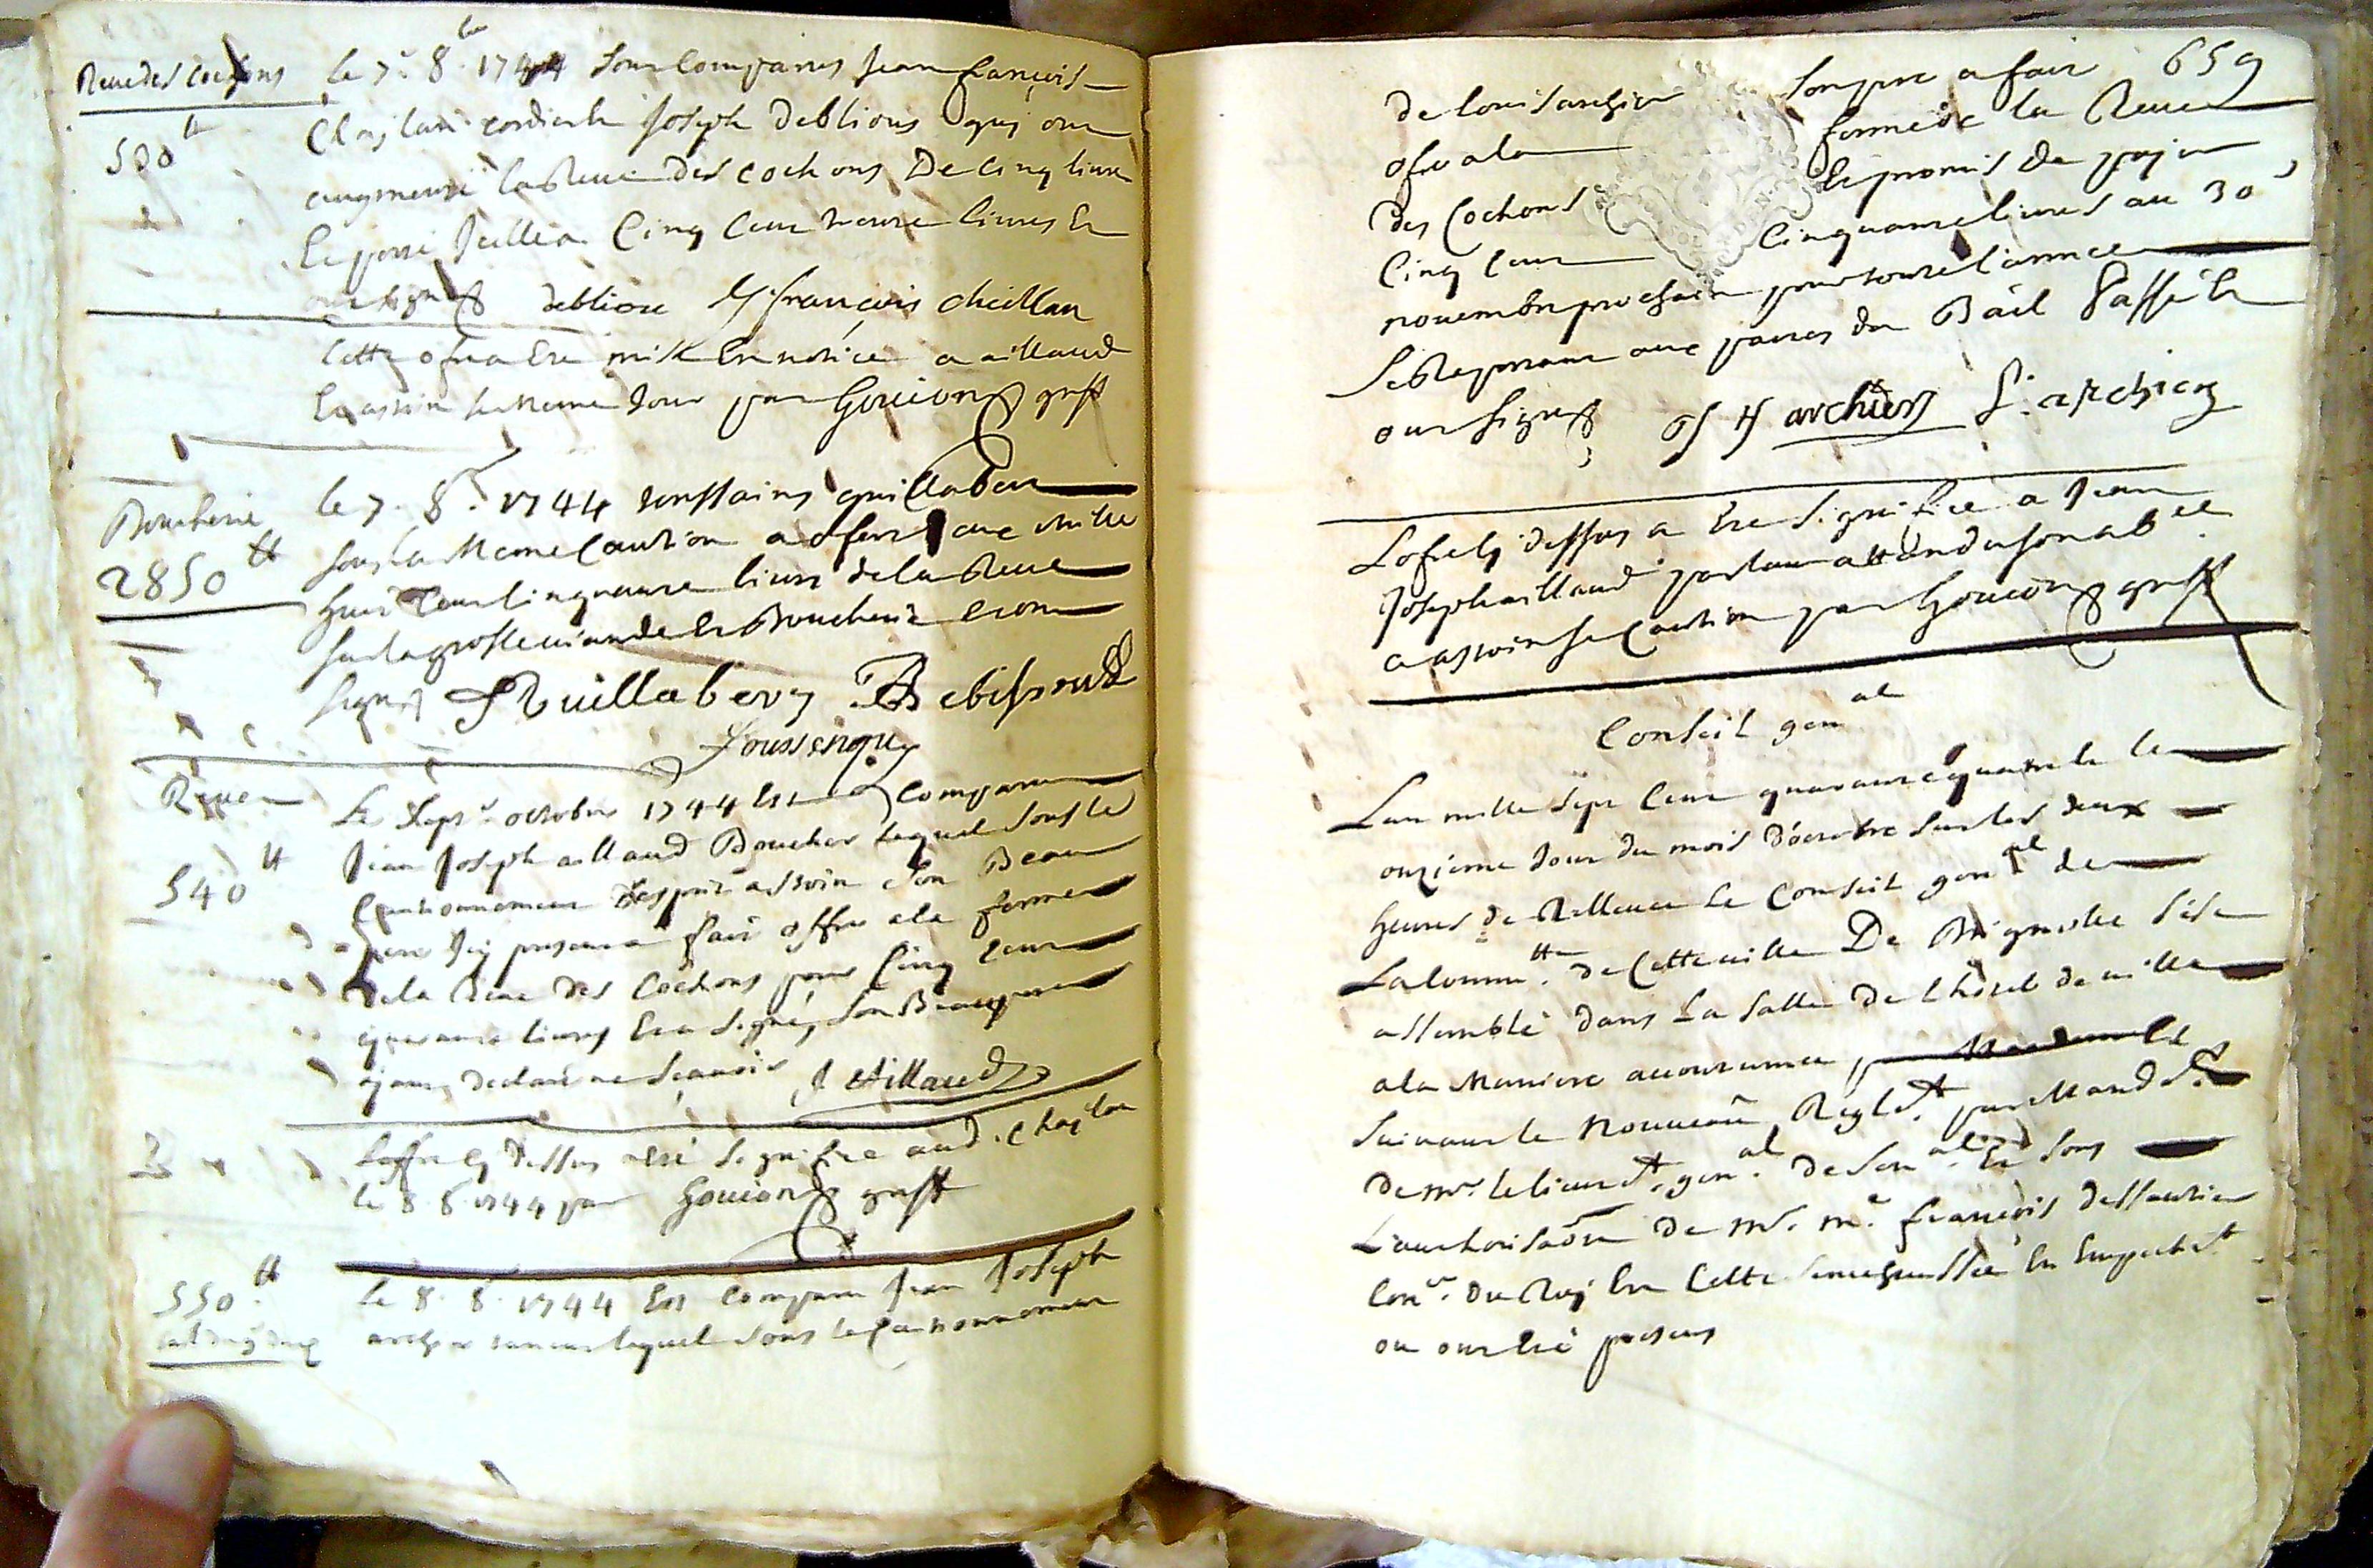 Reue des Cochons
le 7e 8bre 1744 sont Comparus Jean françois
530tt
Chaylan cordier et Joseph deblious quj ont
augmenté la Reue des cochons De Cinq liures
Cinq Cent trente liures Et
ont signés deblioux JS françois cheillan
Cette ofre a Eté mise En notice a aillaud
le meme Jour par Gouion greff
Boucherie
2850tt
le 7. 8e. 1744 toussains guillabert
sous la Meme Caution a ofert deux Mille
huit Cent Cinquante liures de la Reue
sur la grosse viande Et Boucherie Et ont
signés
Toussenquy
Reue
540tt
Le Sept octobre 1744 Est Comparu
Jean Joseph aillaud Boucher lequel sous le
Cautionnement d'esprit son Beau
pere Jcj present a fait offre a la ferme
de la Reue des Cochons pour Cinq Cent
quarante liures Et a signé, son Beaupere
ayant declaré ne sçauoir J Aillaud
L'offre cy dessus a été signifiée aud. Chaylan
le 8. 8. 1744 par Gouion greff
550tt
le 8. 8. 1744 Est Comparu Jean Joseph
archier lequel sous le Cautionnement
659
de louis archier son pere a fait
ofre a la ferme de la Reue
des Cochons Et promis de payer
Cinq Cent Cinquante liures au 30e
nouembre prochain pour toute l'année
aux pactes du Bail Passé Et
ont signés JJ archier L. archier
Lofre cy dessus a Eté signifiée a Jean
Joseph aillaud
Caution par Gouion greff
Conseil genal
Lan mille sept Cent quarante quatre et le
onzieme Jour du mois d'octobre sur les deux
heures de Releuée Le Conseil genal de
La Commtte. de Cette ville De Brignolle s'est
assemblé dans La salle De l'hotel de ville
a la Maniere accoutumée
suiuant le nouueau Reglet. par Mandt.
De Mr. le lieutt. genal. de Senal. Et sous
L'authorisaõn de Mr. Me. françois dessautier
Conr. du Roy En Cette senechaussée En Empechet
ou ont été presens